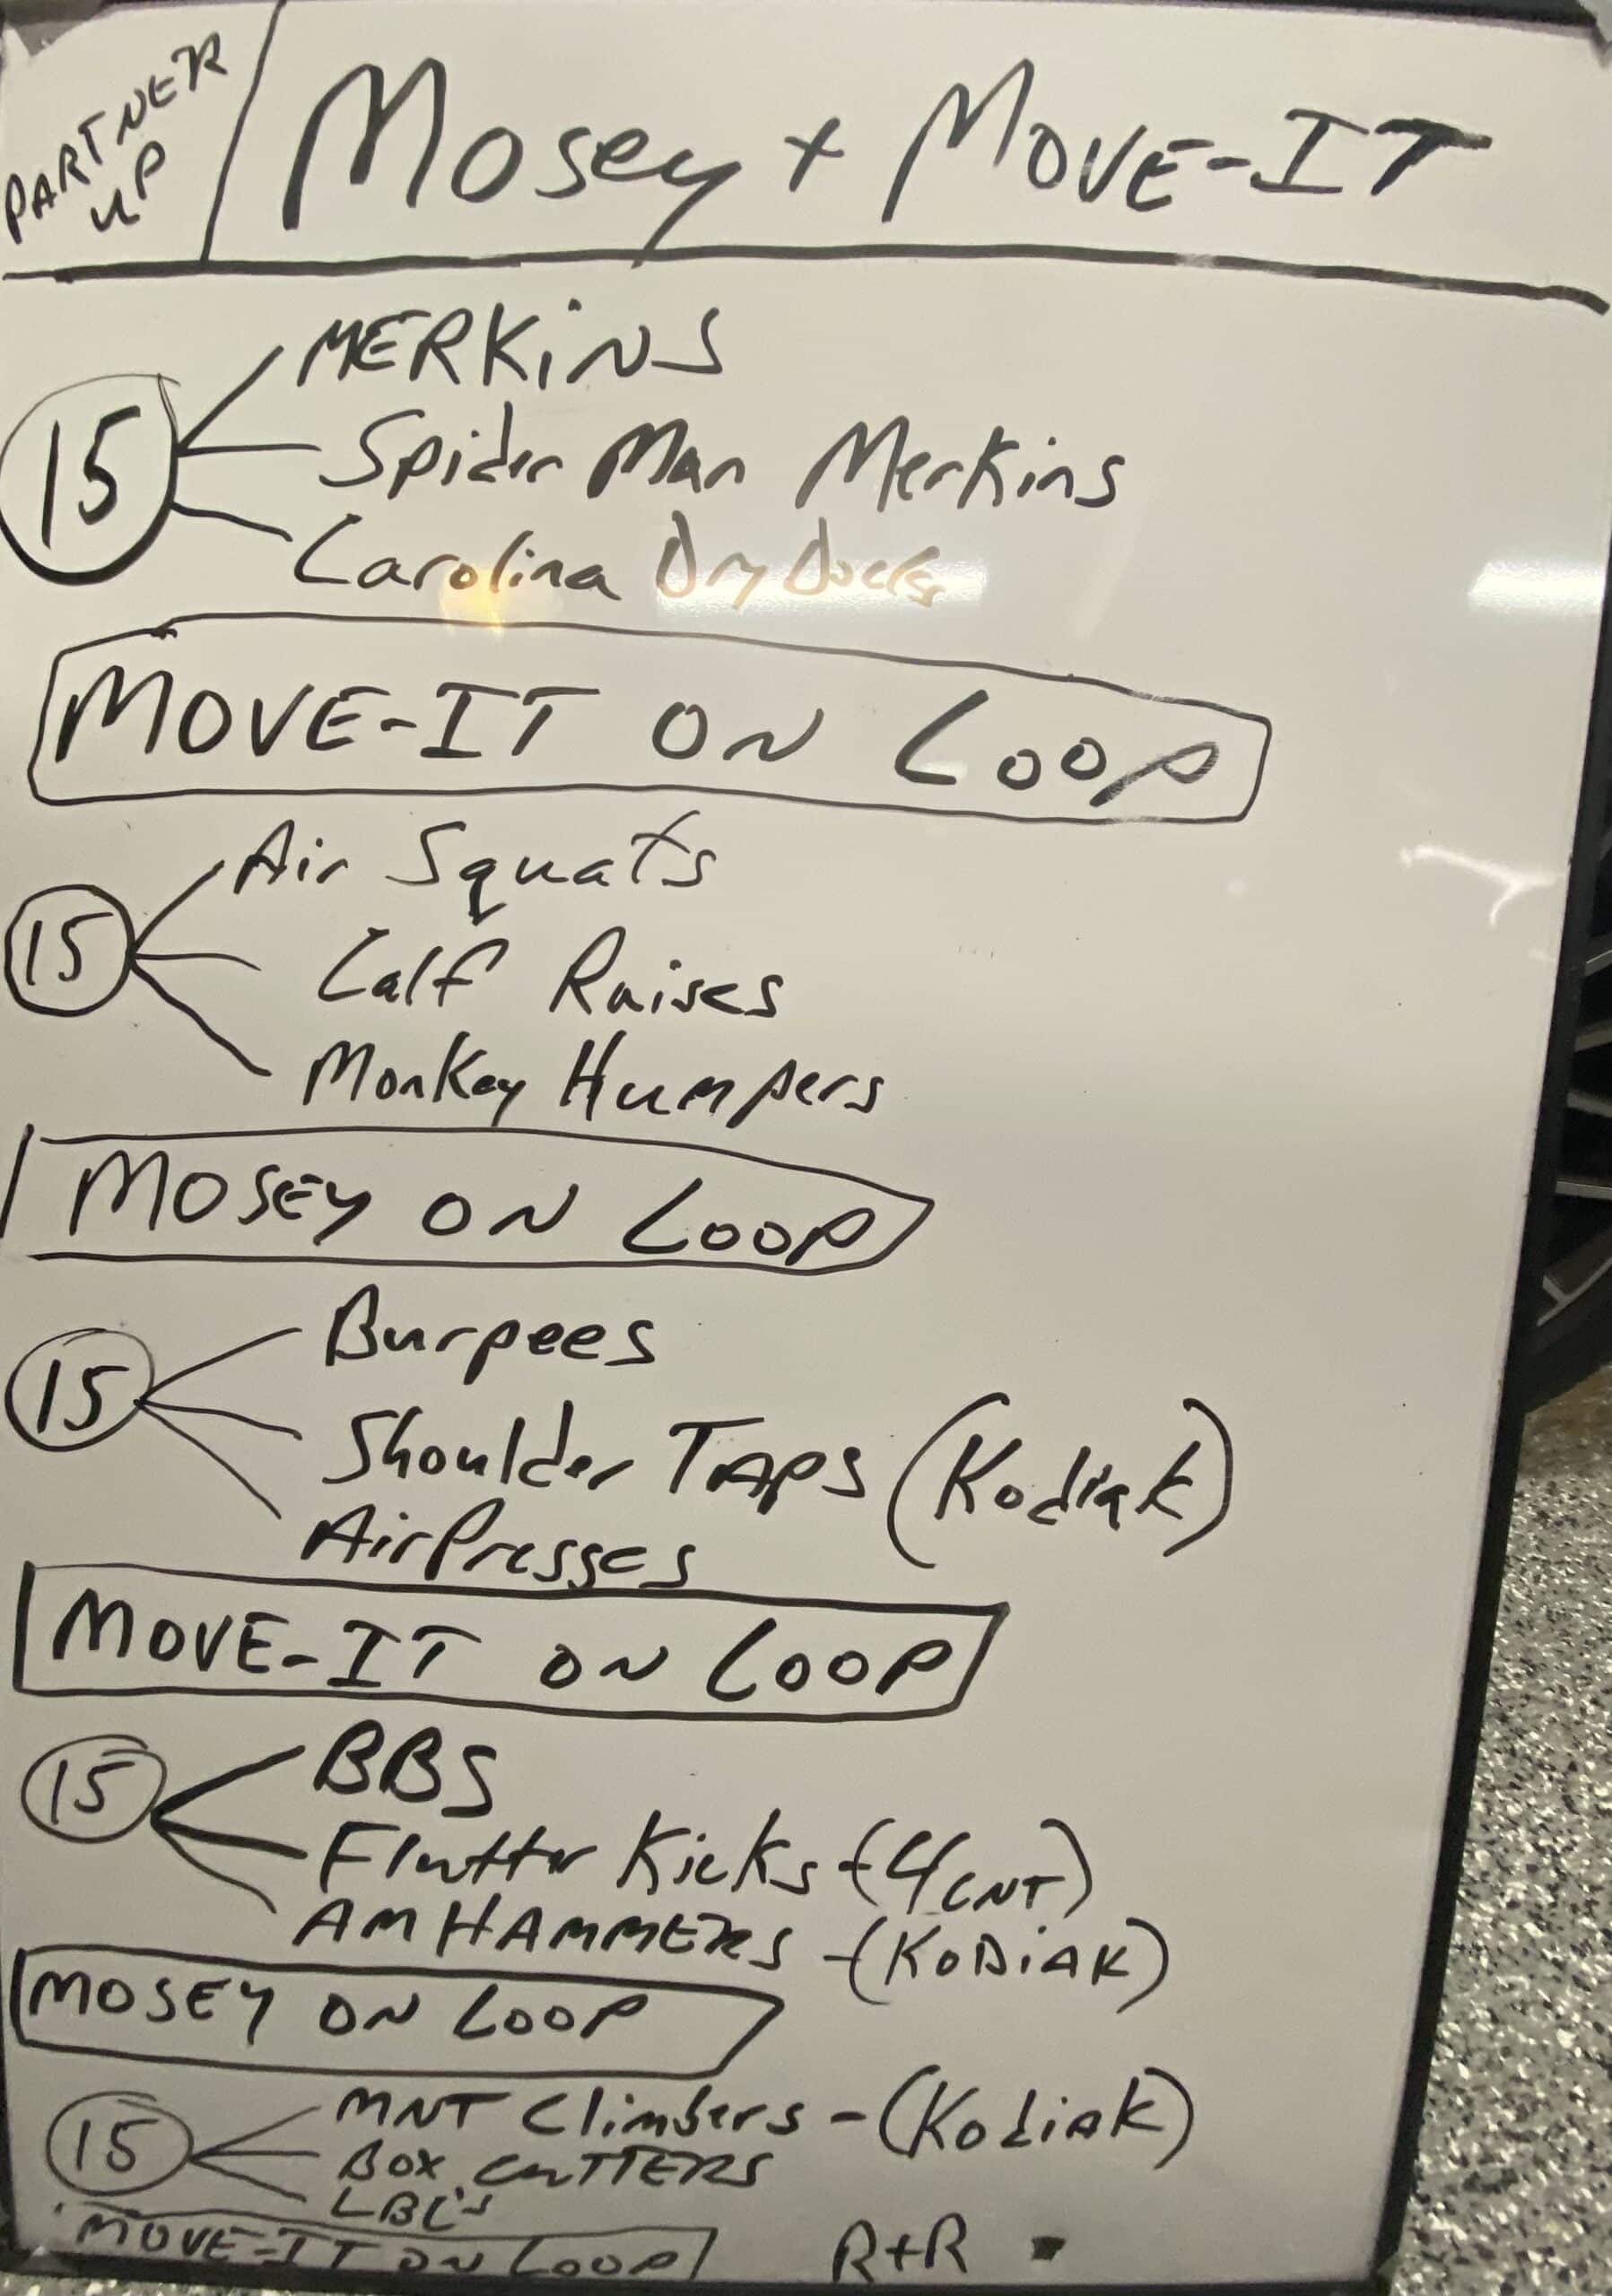 PARTNER UP
Mosey + MOVE-IT
15
MERKiNS
Spider Man Merkins
Carolina Dry Docks
MOVE-IT ON LOOP
15
Air Squats
Calf Raises
Monkey Humpers
MOSEY ON LOOP
15
Burpees
Shoulder TAPS (Kodiak)
Air Presses
MOVE-IT ON LOOP
15
BBS
Flutter Kicks - (4CNT)
AM HAMMERS - (KODiAK)
MOSEY ON LOOP
15
MNT Climbers - (KodiAK)
BOX CUTTERS
LBC's
MOVE-IT ON LOOP
R+R